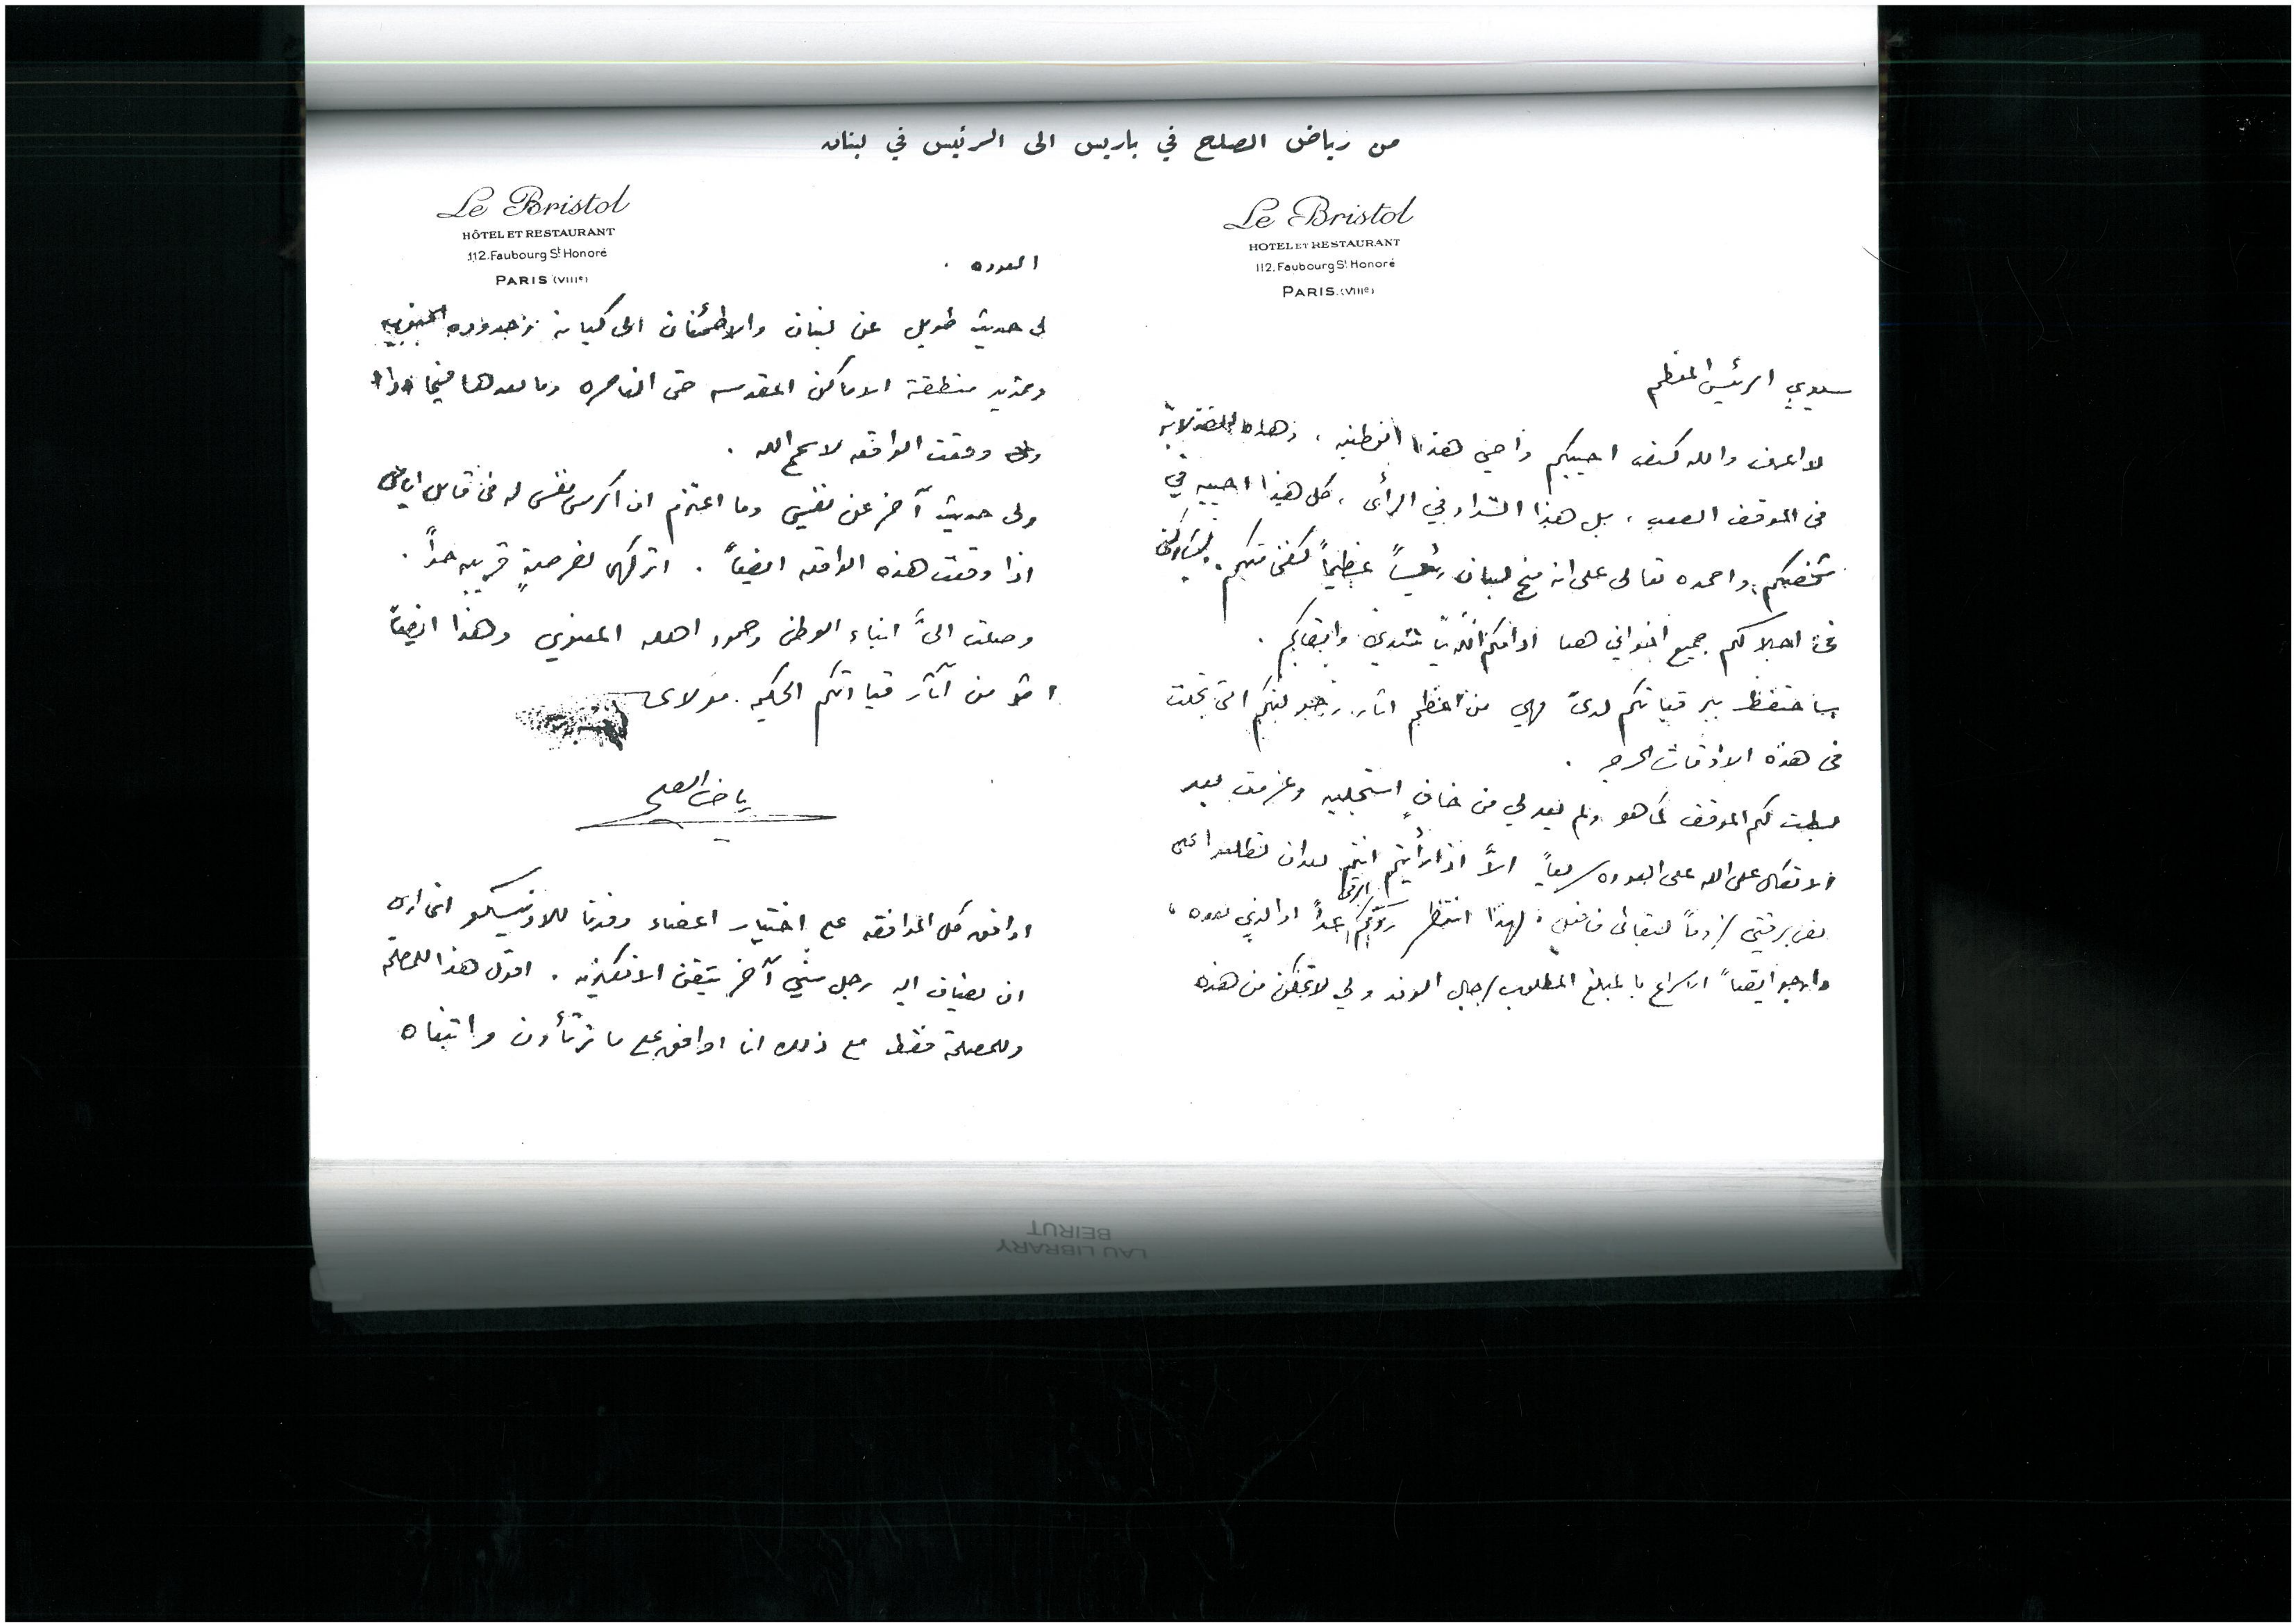 من رياض الصلح في باريس الى الرئيس في لبنان
Le Bristol
HOTEL ET RESTAURANT
112, Faubourg St Honoré
PARIS (VIIIe)
سيدي الرئيس المعظم
لا اعرف والله كيف احييكم واحيي هذه الوطنية، وهذه الصلابة
في الموقف الصعب، بل هذا السداد في الرأي، كل هذا احييه في
شخصكم، واحمده تعالى على انه منح لبنان رئيساً عظيماً كفخامتكم. يشاركني
في اجلالكم جميع اخواني هنا ادامكم الله وابقاكم.
ساحتفظ ببرقياتكم لديّ فهي من اعظم اثار رجولتكم التي تجلت
في هذه الاوقات الحرجه.
بسطت لكم الموقف كما هو ولم يعد لي من خافٍ استجليه وعزمت بعد
الاتكال على الله على العوده سريعاً الاَّ اذا رأيتم انتم بعد ان تطلعوا على
نص برقيتي لزوماً لبقائي فافعل، لهذا انتظر رأيكم غداً او الذي بعده،
وارجو ايضاً الاسراع بالمبلغ المطلوب لرجال الوفد ولي لاتمكن من هذه
Le Bristol
HÔTEL ET RESTAURANT
112. Faubourg St Honoré
PARIS (VIIIe)
العوده.
لي حديث طويل عن لبنان والاطمئنان الى كيانه وحدوده الجنوبيه
وتمديد منطقة الاماكن المقدسه حتى الناصره وما بعدها فيما اذا
وقعت الواقعه لا سمح الله.
ولي حديث آخر عن نفسي وما اعتزم ان اكرس نفسي له في قابل ايامي
اذا وقعت هذه الواقعه ايضاً. اتركهما لفرصةٍ قريبه جداً.
وصلت اليَّ انباء الوطن وصمود اهله المعنوي وهذا ايضاً
من آثار قيادتكم الحكيمه. مولاي
رياض الصلح
اوافق كل الموافقه على اختيار اعضاء وفدنا للاونيسكو انني ارى
ان يضاف اليه رجل آخر يتقن الانكليزيه. اقول هذا للمصلحة
وللمصلحة فقط مع ذلك انا اوافق على ما ترتأون
LAU LIBRARY
BEIRUT